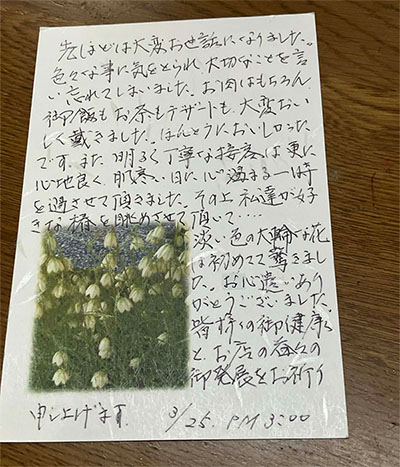 先ほどは大変お世話になりました。
色々な事に気をとられ大切なことを言
い忘れてしまいました。お肉はもちろん
御飯もお茶もデザートも大変おい
しく戴きました。ほんとうにおいしかった
です。また明るく丁寧な接客は更に
心地良く、肌寒い日に心温まる一時
を過させて頂きました。その上私達が好
きな椿を眺めさせて頂いて…
淡い色の大輪な花
は初めてで驚きまし
た。お心遣いあり
がとうございました
皆様の御健康
と、お店の益々の
御発展をお祈り
申し上げます。 3/25. PM 3:00